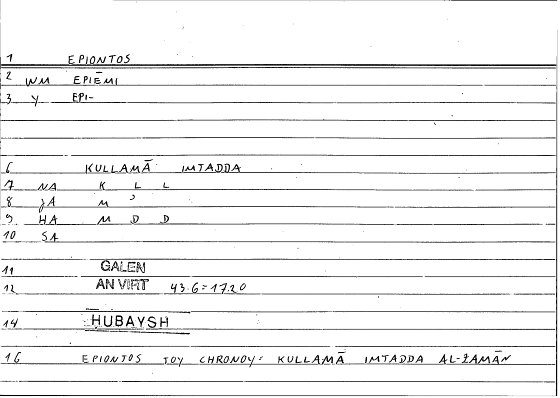 1 EPIONTOS
2 WM EPIĒMI
3 Y EPI-
6 KULLAMĀ IMTADDA
7 NA K L L
8 JA M ʾ
9 HA M D D
10 SA
11 GALEN
12 AN VIRT 43.6=17.20
14 HUBAYSH
16 EPIONTOS TOY CHRONOY: KULLAMĀ IMTADDA AL-ZAMĀN